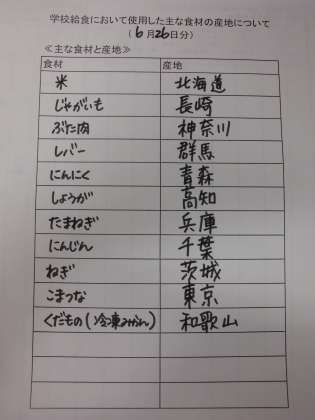 学校給食において使用した主な食材の産地について
（6月26日分）
≪主な食材と産地≫
食材 産地
米 北海道
じゃがいも 長崎
ぶた肉 神奈川
レバー 群馬
にんにく 青森
しょうが 高知
たまねぎ 兵庫
にんじん 千葉
ねぎ 茨城
こまつな 東京
くだもの(冷凍みかん) 和歌山